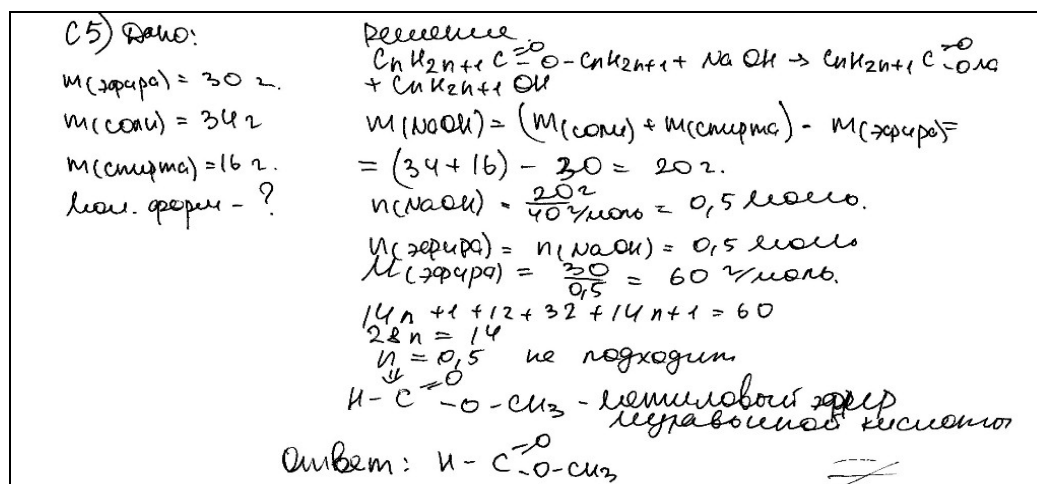 С5) Дано:
m(эфира) = 30 г.
m(соли) = 34 г
m(спирта) = 16 г.
Мол. форм - ?
Решение
CnH2n+1 C=O-O-CnH2n+1 + NaOH → CnH2n+1 C=O-ONa
+ CnH2n+1 OH
m(NaOH) = (m(соли) + m(спирта)) - m(эфира) =
= (34 + 16) - 30 = 20 г.
n(NaOH) = 20 г/40 г/моль = 0,5 моль.
n(эфира) = n(NaOH) = 0,5 моль
M(эфира) = 30/0,5 = 60 г/моль.
14n + 1 + 12 + 32 + 14n + 1 = 60
28n = 14
n = 0,5 не подходит
⇓
H - C =O -O - CH3 - метиловый эфир
муравьиной кислоты
Ответ: H - C =O -O-CH3